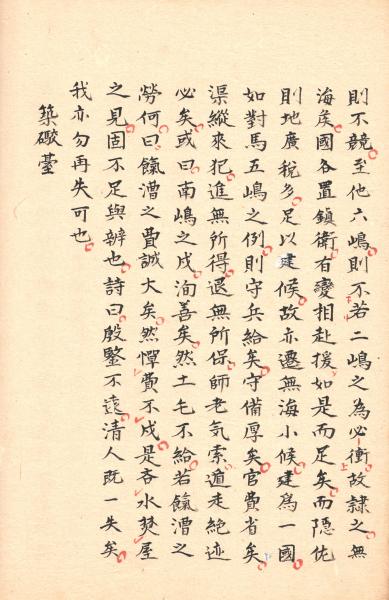 則不競至他六嶋則不若二嶋之為必衝故隷之無
海矦國各置鎮衛有變相赴援如是而足矣而隠佐
則地廣税多足以建候故亦遷無海小候建為一國
如對馬五嶋之例則守兵給矣守備厚矣官費省矣
渠縱來犯進無所得退無所保師老気索遁走絶迹
必矣或曰南嶋之戍洵善矣然土毛不給若餼漕之
勞何曰餼漕之費誠大矣然憚費不戍是吝水焚屋
之見固不足與辨也詩曰殷鑒不遠清人既一失矣
我亦勿再失可也
築礮臺